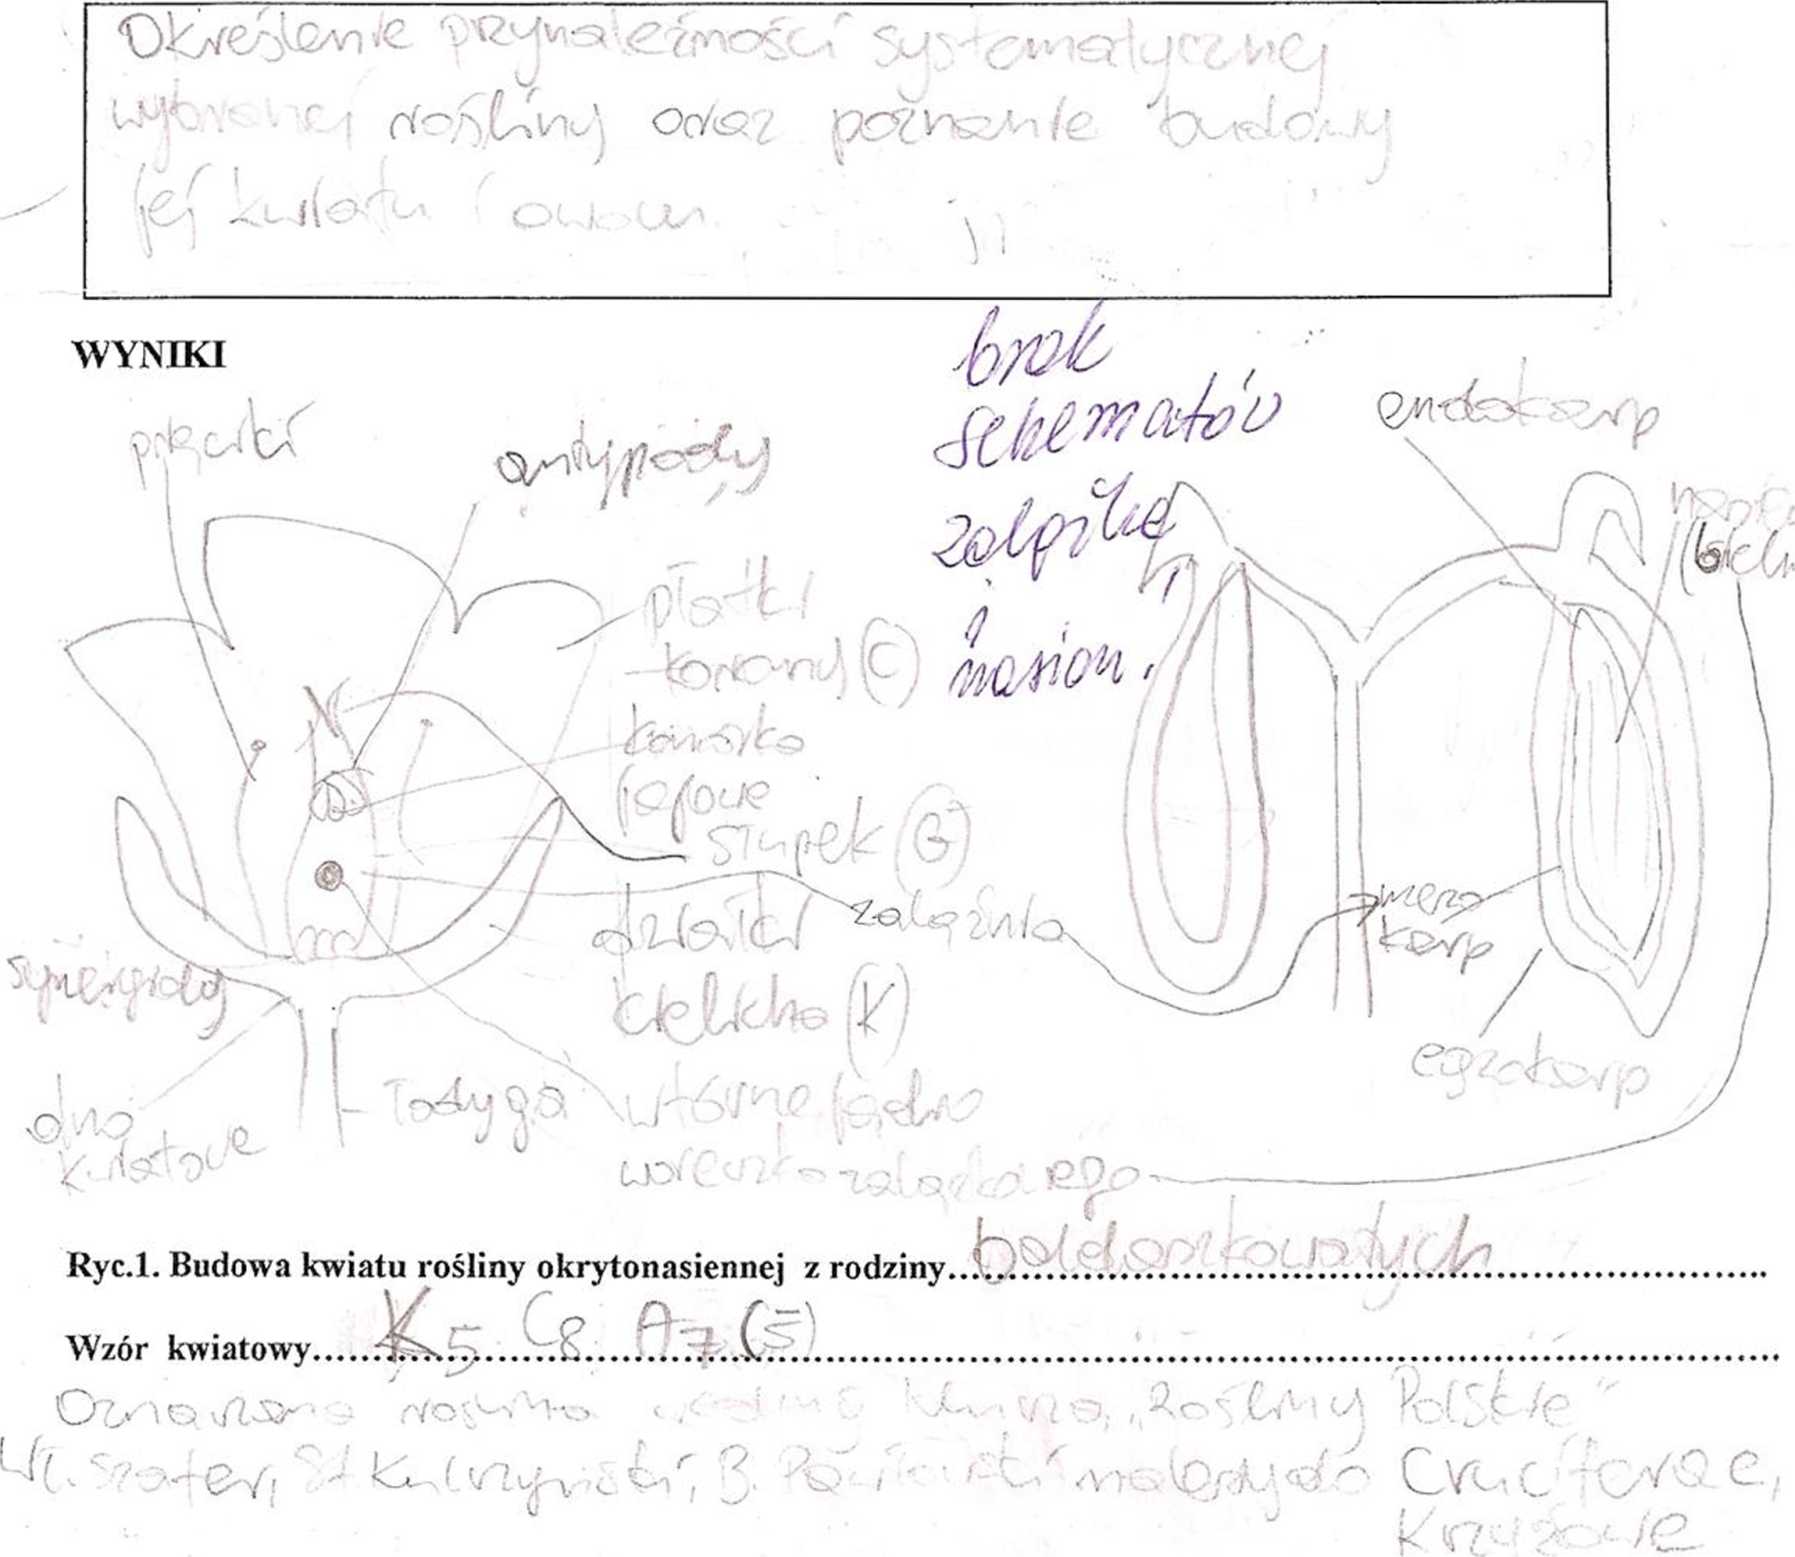 Określenie przynależności systematycznej
wybranej rośliny oraz poznanie budowy
jej kwiatu i owocu.
WYNIKI
brak
schematów
zalążka
i
nasion.
pręciki
antypody
płatki
korony (C)
komórka
jajowe
słupek (G)
zalążnia
działki
kielicha (K)
synergidy
dno
kwiatowe
łodyga
wtórne jądro
woreczka zalążkowego
endokarp
mezo
karp
egzokarp
Ryc.1. Budowa kwiatu rośliny okrytonasiennej z rodziny baldaszkowatych
Wzór kwiatowy K5 C8 A7 (5)
Oznaczona roślina według klucza "Rośliny Polskie"
Wł. Szafer, St. Kulczyński, B. Pawłowski należy do Cruciferae,
Krzyżowe